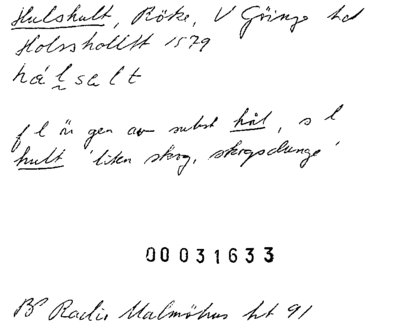 Hulshult, Röke, V Göinge hd
Holsshollt 1579
hálsalt
f l är gen av subst hål, s l
hult 'liten skog, skogsdunge'
00031633
BP Radio Malmöhus ht 91